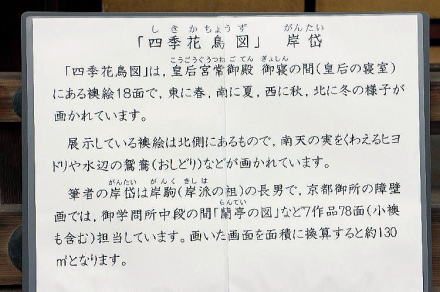 しきかちょうず がんたい
「四季花鳥図」 岸岱
こうごうぐうつねごてん ぎょしん
「四季花鳥図」は，皇后宮常御殿 御寝の間(皇后の寝室)
にある襖絵18面で，東に春，南に夏，西に秋，北に冬の様子が
画かれています。
展示している襖絵は北側にあるもので，南天の実をくわえるヒヨ
ドリや水辺の鴛鴦(おしどり)などが画かれています。
がんたい がんく きしは
筆者の岸岱は岸駒(岸派の祖)の長男で，京都御所の障壁
らんてい
画では，御学問所中段の間「蘭亭の図」など7作品78面(小襖
も含む)担当しています。画いた画面を面積に換算すると約130
㎡となります。